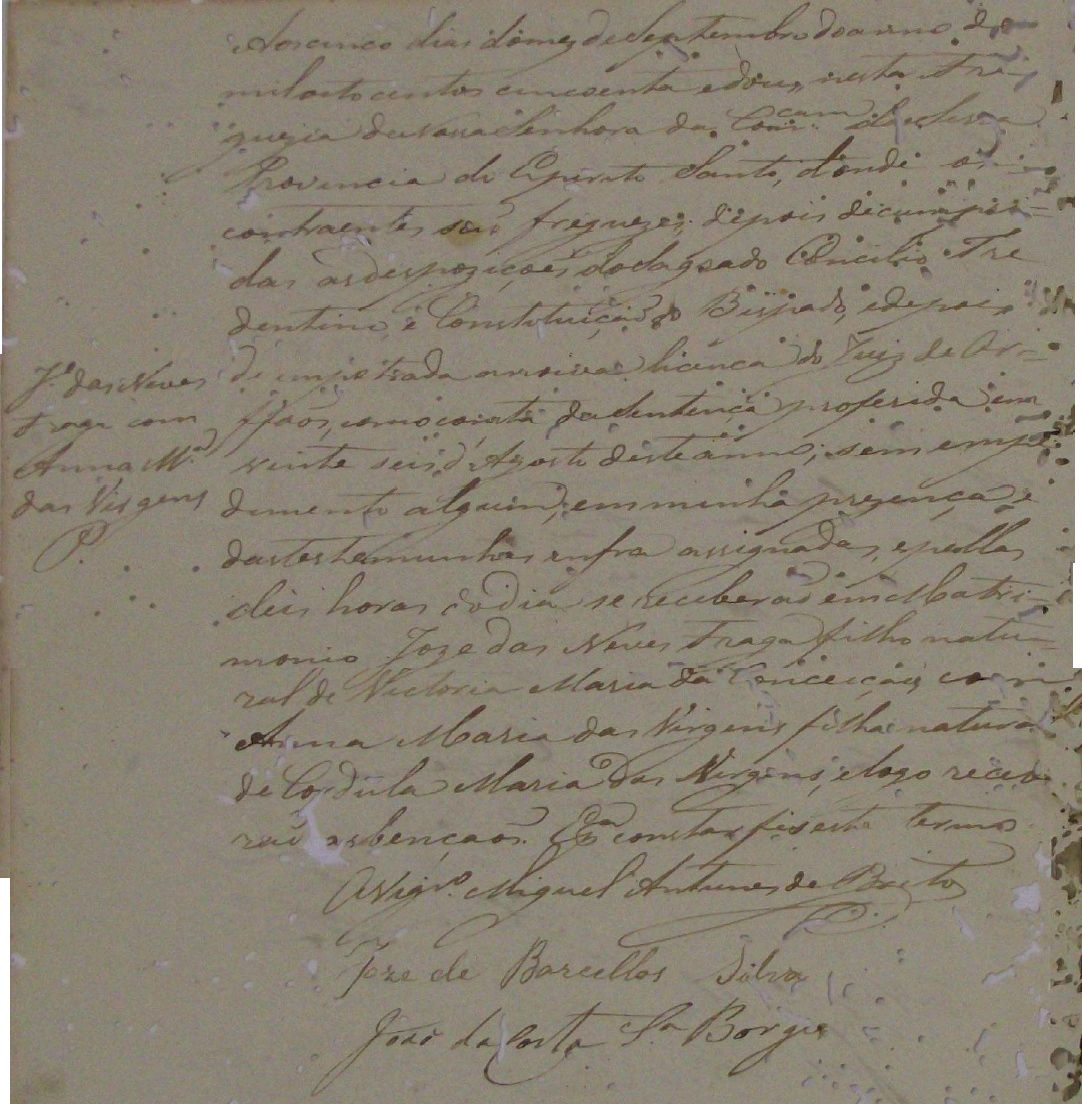 Aos cinco dias do mez de Septembro do anno de
mil oito centos cincoenta e dous, nesta Fre-
guezia de Nossa Senhora da Concam da Serra
Provincia do Espirito Santo, donde os
contraentes são freguezes; depois de cumpri-
das as despozições do Sagrado Concilio Tre
dentino, e Constituição do Bispado, e depois
de impetrada a licença do Juiz de Or-
ffãos, como consta da Sentença proferida em
vinte seis d'Agosto deste anno; sem empe
dimento alguem; em minha prezença, e
das testemunhas infra assignadas, e pellas
deis horas do dia se receberão em Matri-
monio Joze das Neves Fraga filho natu-
ral de Victoria Maria da Conceição, com
Anna Maria das Virgens filha natural
de Cordula Maria das Virgens, e logo recebe
rão as bençãos. E pa constar fis este termo
O Vigro. Miguel Antunes de Brito
Joze de Barcellos Silva
João da Costa Sa Borges
Je. das Neves
Fraga com
Anna Ma.
das Virgens
P.